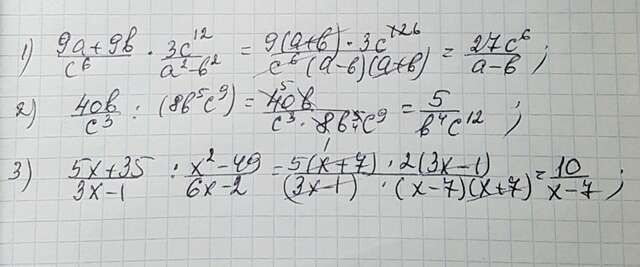 1) (9a+9b)/c⁶ · 3c¹²/(a²-b²) = 9(a+b)·3c¹²⁶/(c⁶(a-b)(a+b)) = 27c⁶/(a-b) ;
2) 40b/c³ : (8b⁵c⁹) = ⁵40b/(c³·8b⁵⁴c⁹) = 5/(b⁴c¹²) ;
3) (5x+35)/(3x-1) : (x²-49)/(6x-2) = 5(x+7)·2(3x-1)/((3x-1)·(x-7)(x+7)) = 10/(x-7) ;